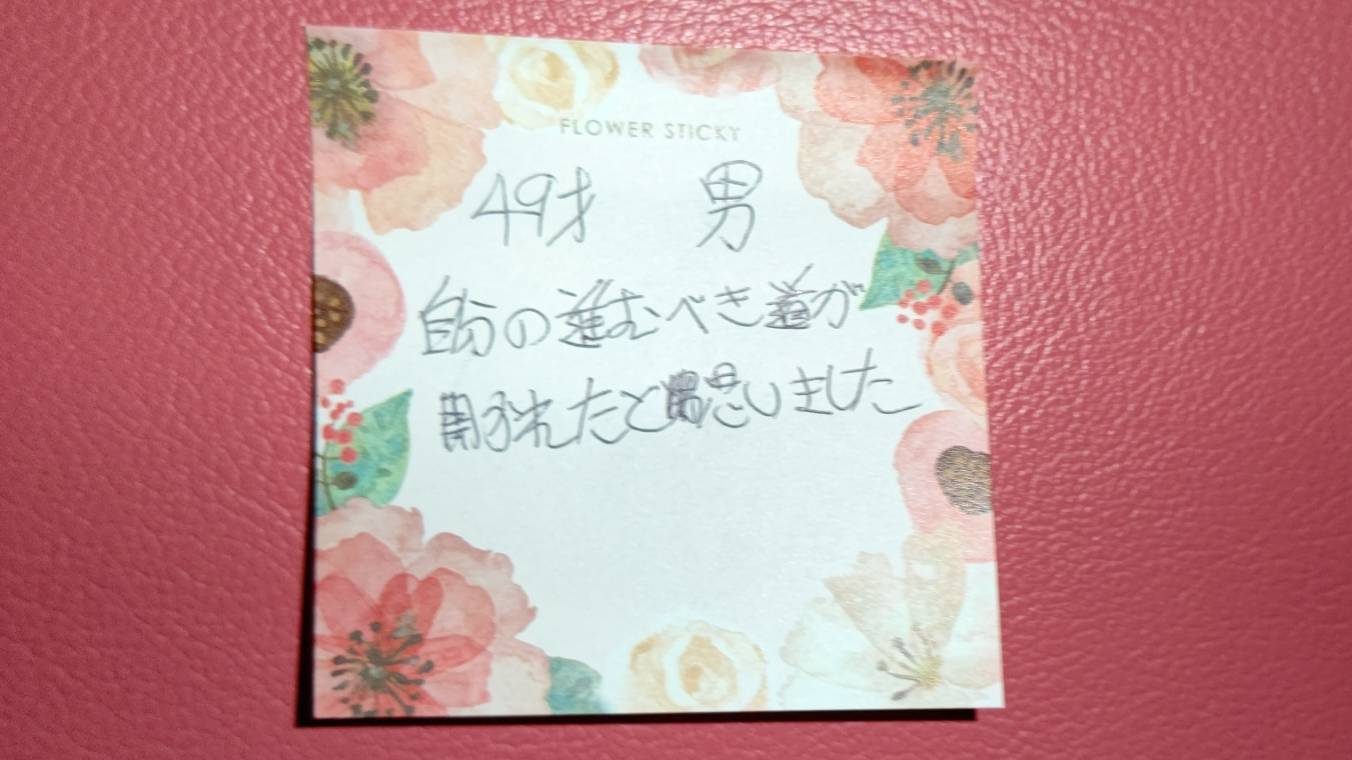 FLOWER STICKY
49才 男
自分の進むべき道が
開かれたと思いました